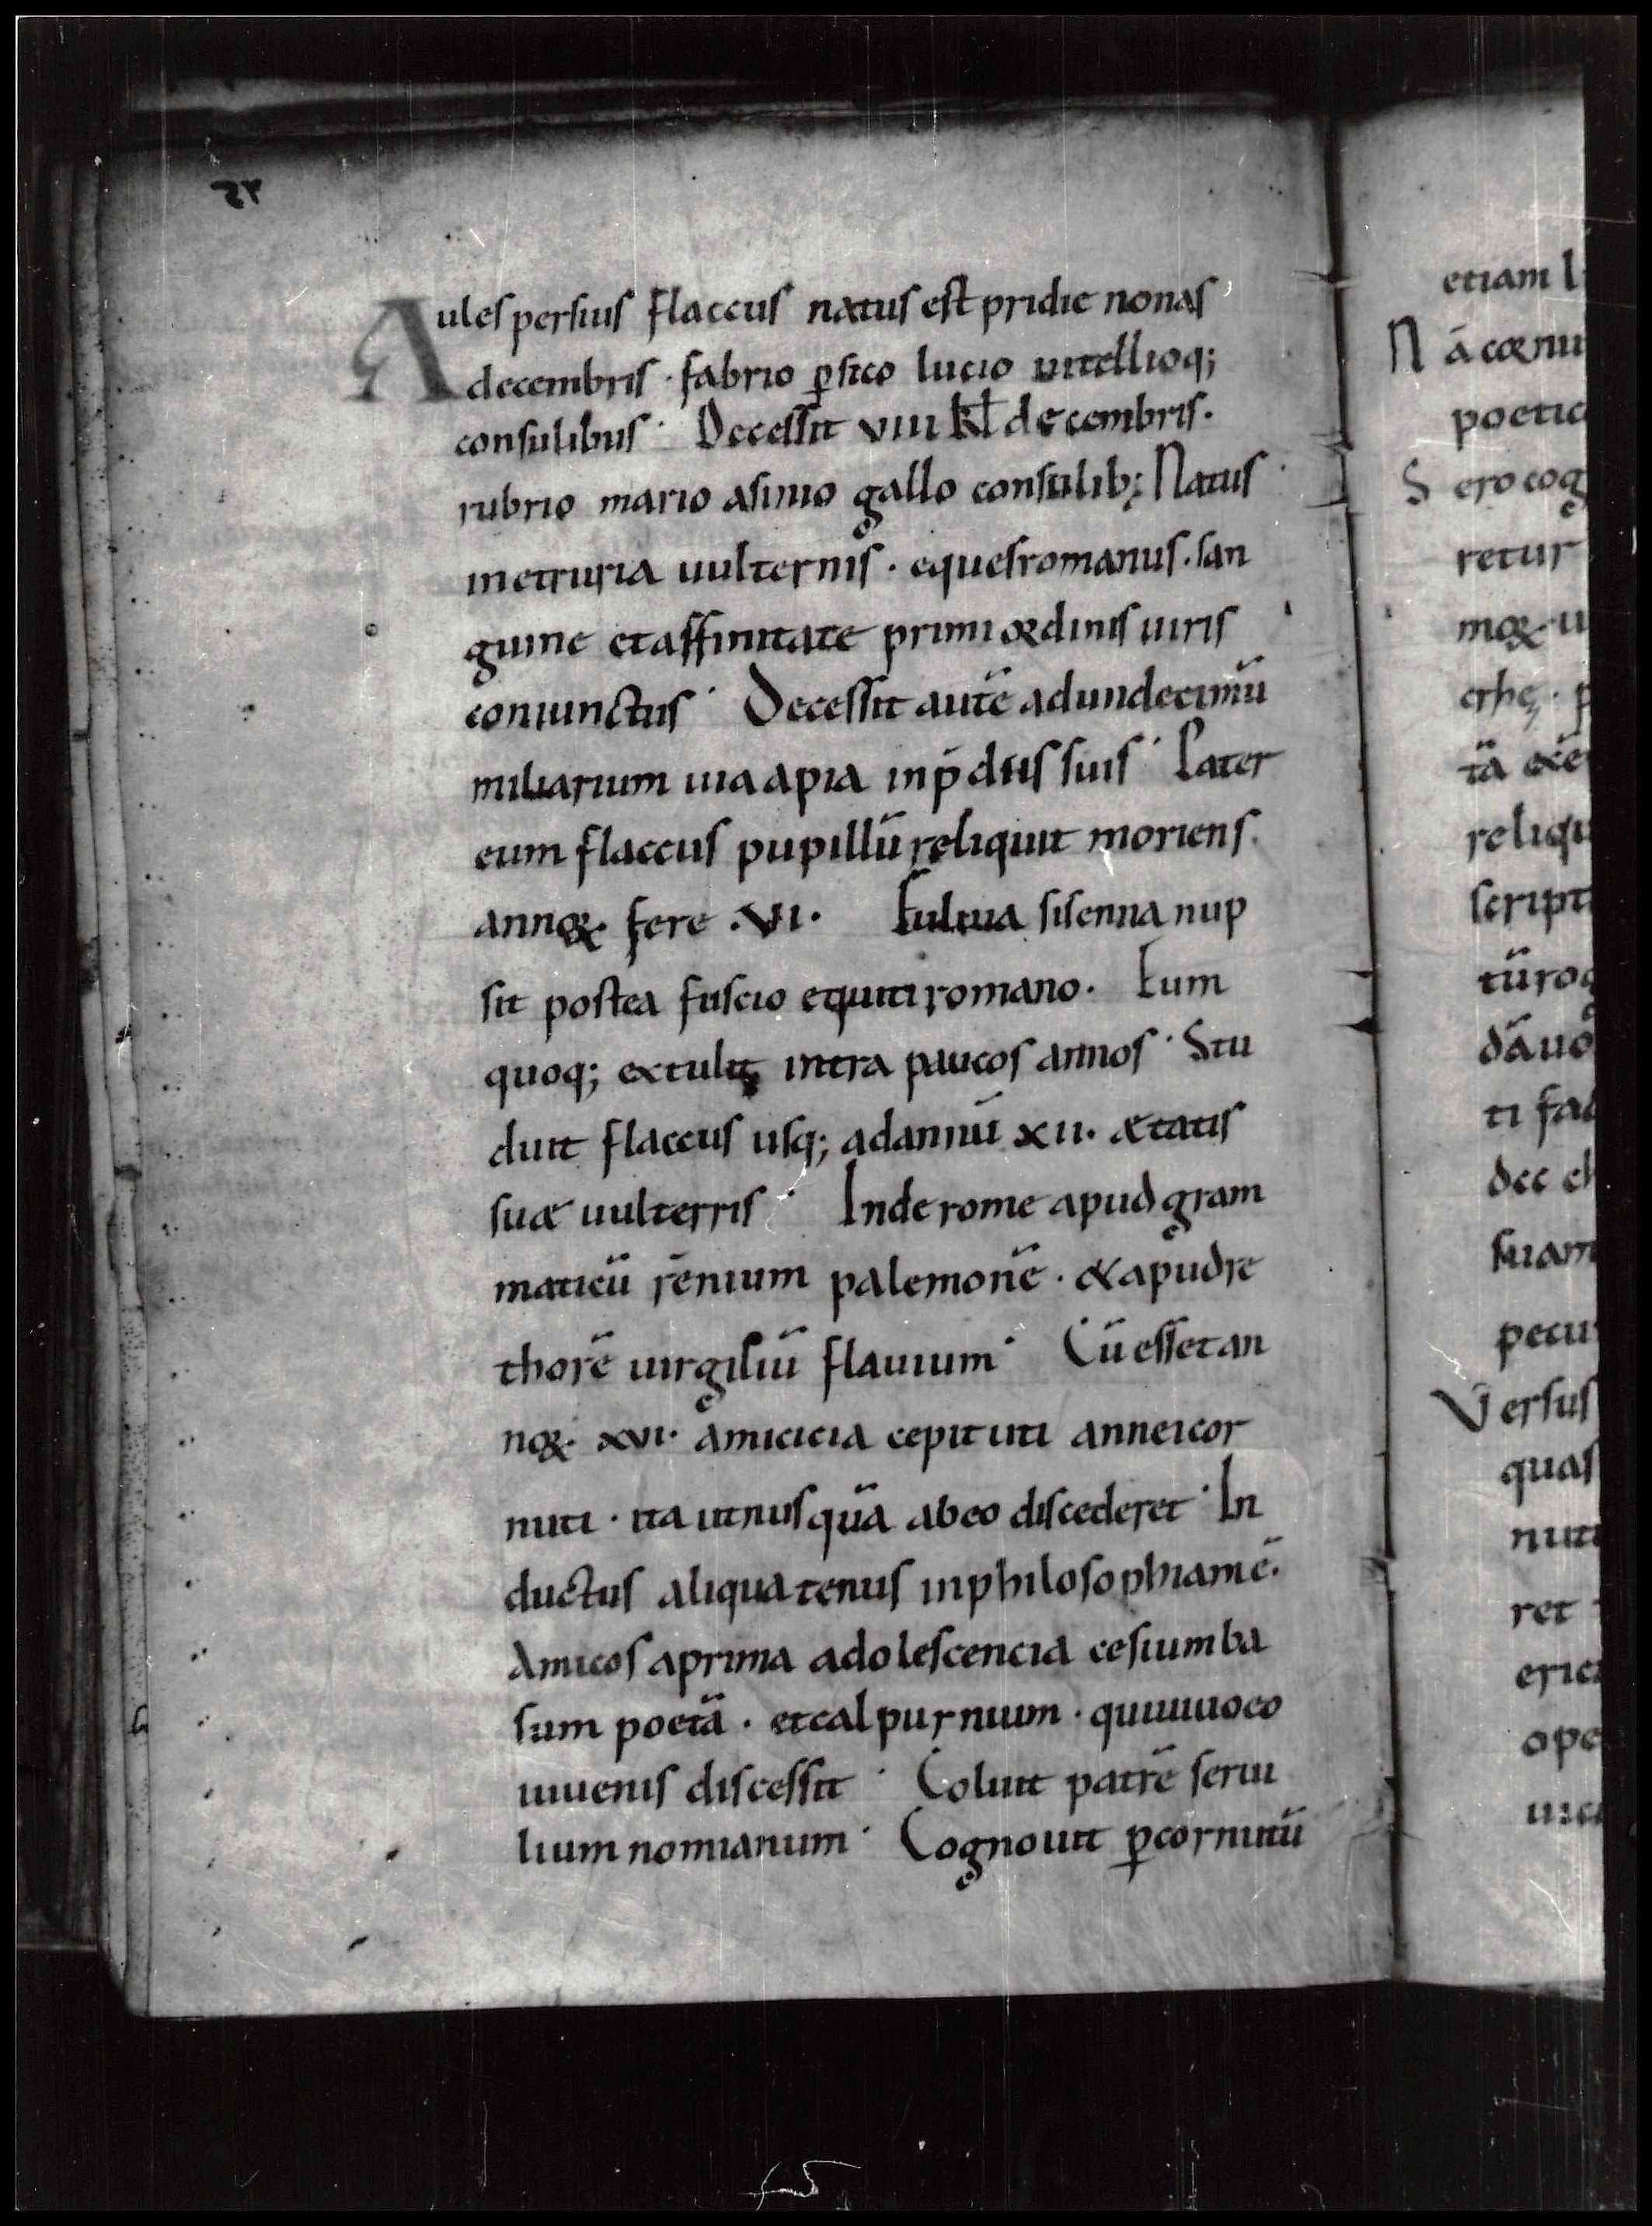 Aules persius flaccus natus est pridie nonas
decembris · fabrio ꝑsico lucio uitellioq;
consulibus · Decessit viii kł decembris.
rubrio mario asinio gallo consulib; Natus
inetruria uulternis · equesromanus · san
guine etaffinitate primi ordinis uiris
coniunctus · Decessit autē adundecimū
miliarium uia apia inp̄diis suis · Pater
eum flaccus pupillū reliquit moriens.
annoꝝ fere .VI. Fuluia sisenna nup
sit postea fuscio equitiromano. Eum
quoq; extulit intra paucos annos · Stu
duit flaccus usq; adannū xii. ætatis
suæ uulterris · Inde rome apud gram
maticū rēnium palemonē · &apudre
thorē uirgiliū flauium · Cū essetan
noꝝ. xvi. amicicia cepit uti anneicor
nuti · ita utnusquā abeo discederet · In
ductus aliquatenus inphilosophiamē.
Amicos aprima adolescencia cesiumba
sum poetā · etcalpurnium · quiuiuoeo
iuuenis discessit · Coluit patrē serui
lium nonianum · Cognouit ꝑcornutū
etiam
Nā cœnu
poetic
Sero cog
retur
moꝝ
reliqu
script
tūrog
dāuo
ti fac
dec
suam
pecu
Versus
quas
nuti
ret
eric
ope